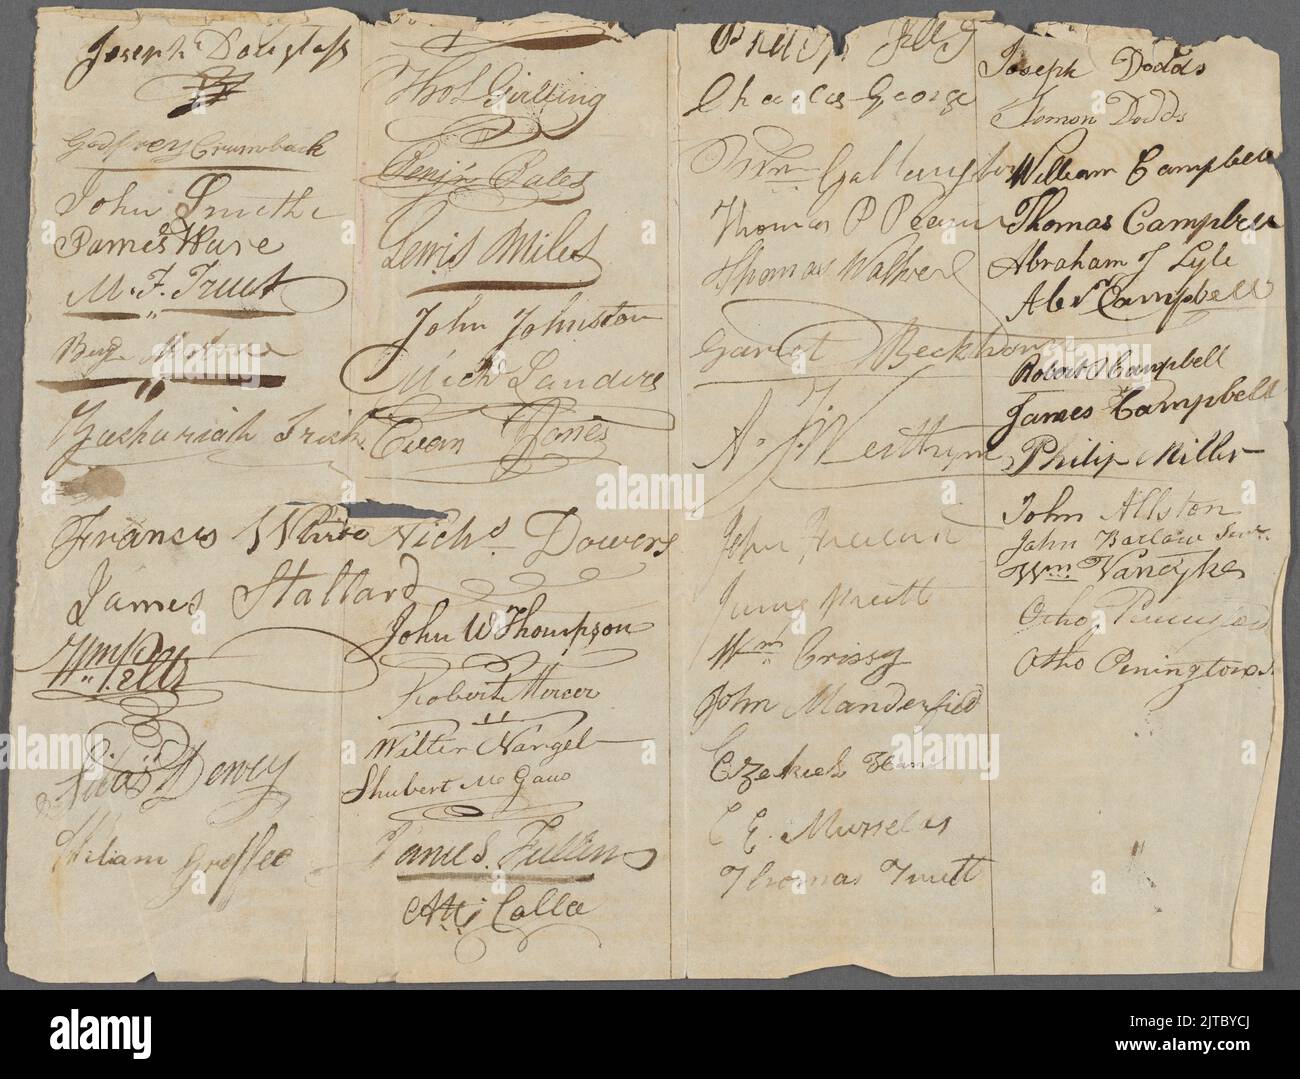 Joseph Douglass
Godfrey Crumback
John Smith
James Ware
M. F. Truet
Zachariah Trich
Francis White
James Stallard
Wm P.
Wells
Silas Dewey
William Groffee
Thos Girling
Benjn Bales
Lewis Miles
John Johnston
Michl Landers
Evan Jones
Nichs Dowers
John W Thompson
Robert Mercer
Walter Nangel
Shubert McGaw
James Fullen
Atti Calla
Philip
Charles George
Wm Gallington
Thomas P
Thomas Walker
Garrot Beckhorn
A. J. Westhym
John
Wm Crissy
John Manderfied
Ezekiel
C E. Murselas
Thomas Truett
Joseph Dodds
Simon Dodds
William Campbell
Thomas Campbell
Abraham J Lyle
Alexr Campbell
Robert O Campbell
James Campbell
Philip Miller
John Allston
John Barlow Senr.
Wm. Vandyke
Otho Penington
Otho Penington
alamy
Image ID: 2JTBYCJ
www.alamy.com